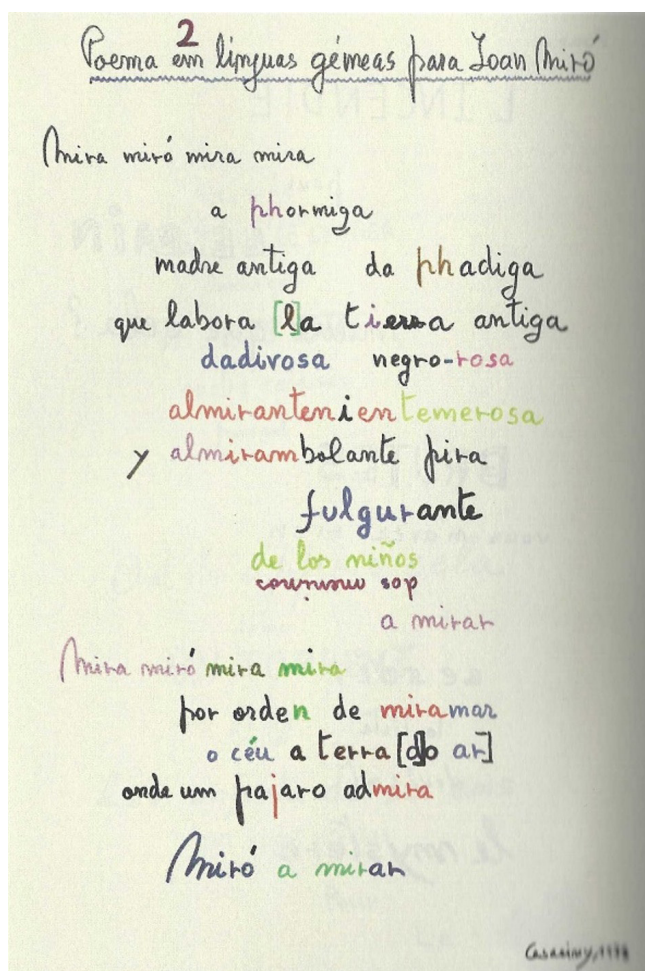 Poema em 2 línguas gémeas para Joan Miró
Mira miró mira mira
a phormiga
madre antiga da phadiga
que labora [l]a tierra antiga
dadivosa negro-rosa
almirantenientemerosa
y almirambolante pira
fulgurante
de los niños
dos meninos
a mirar
Mira miró mira mira
por orden de miramar
o céu a terra [d]o ar]
onde um pajaro admira
Miró a mirar